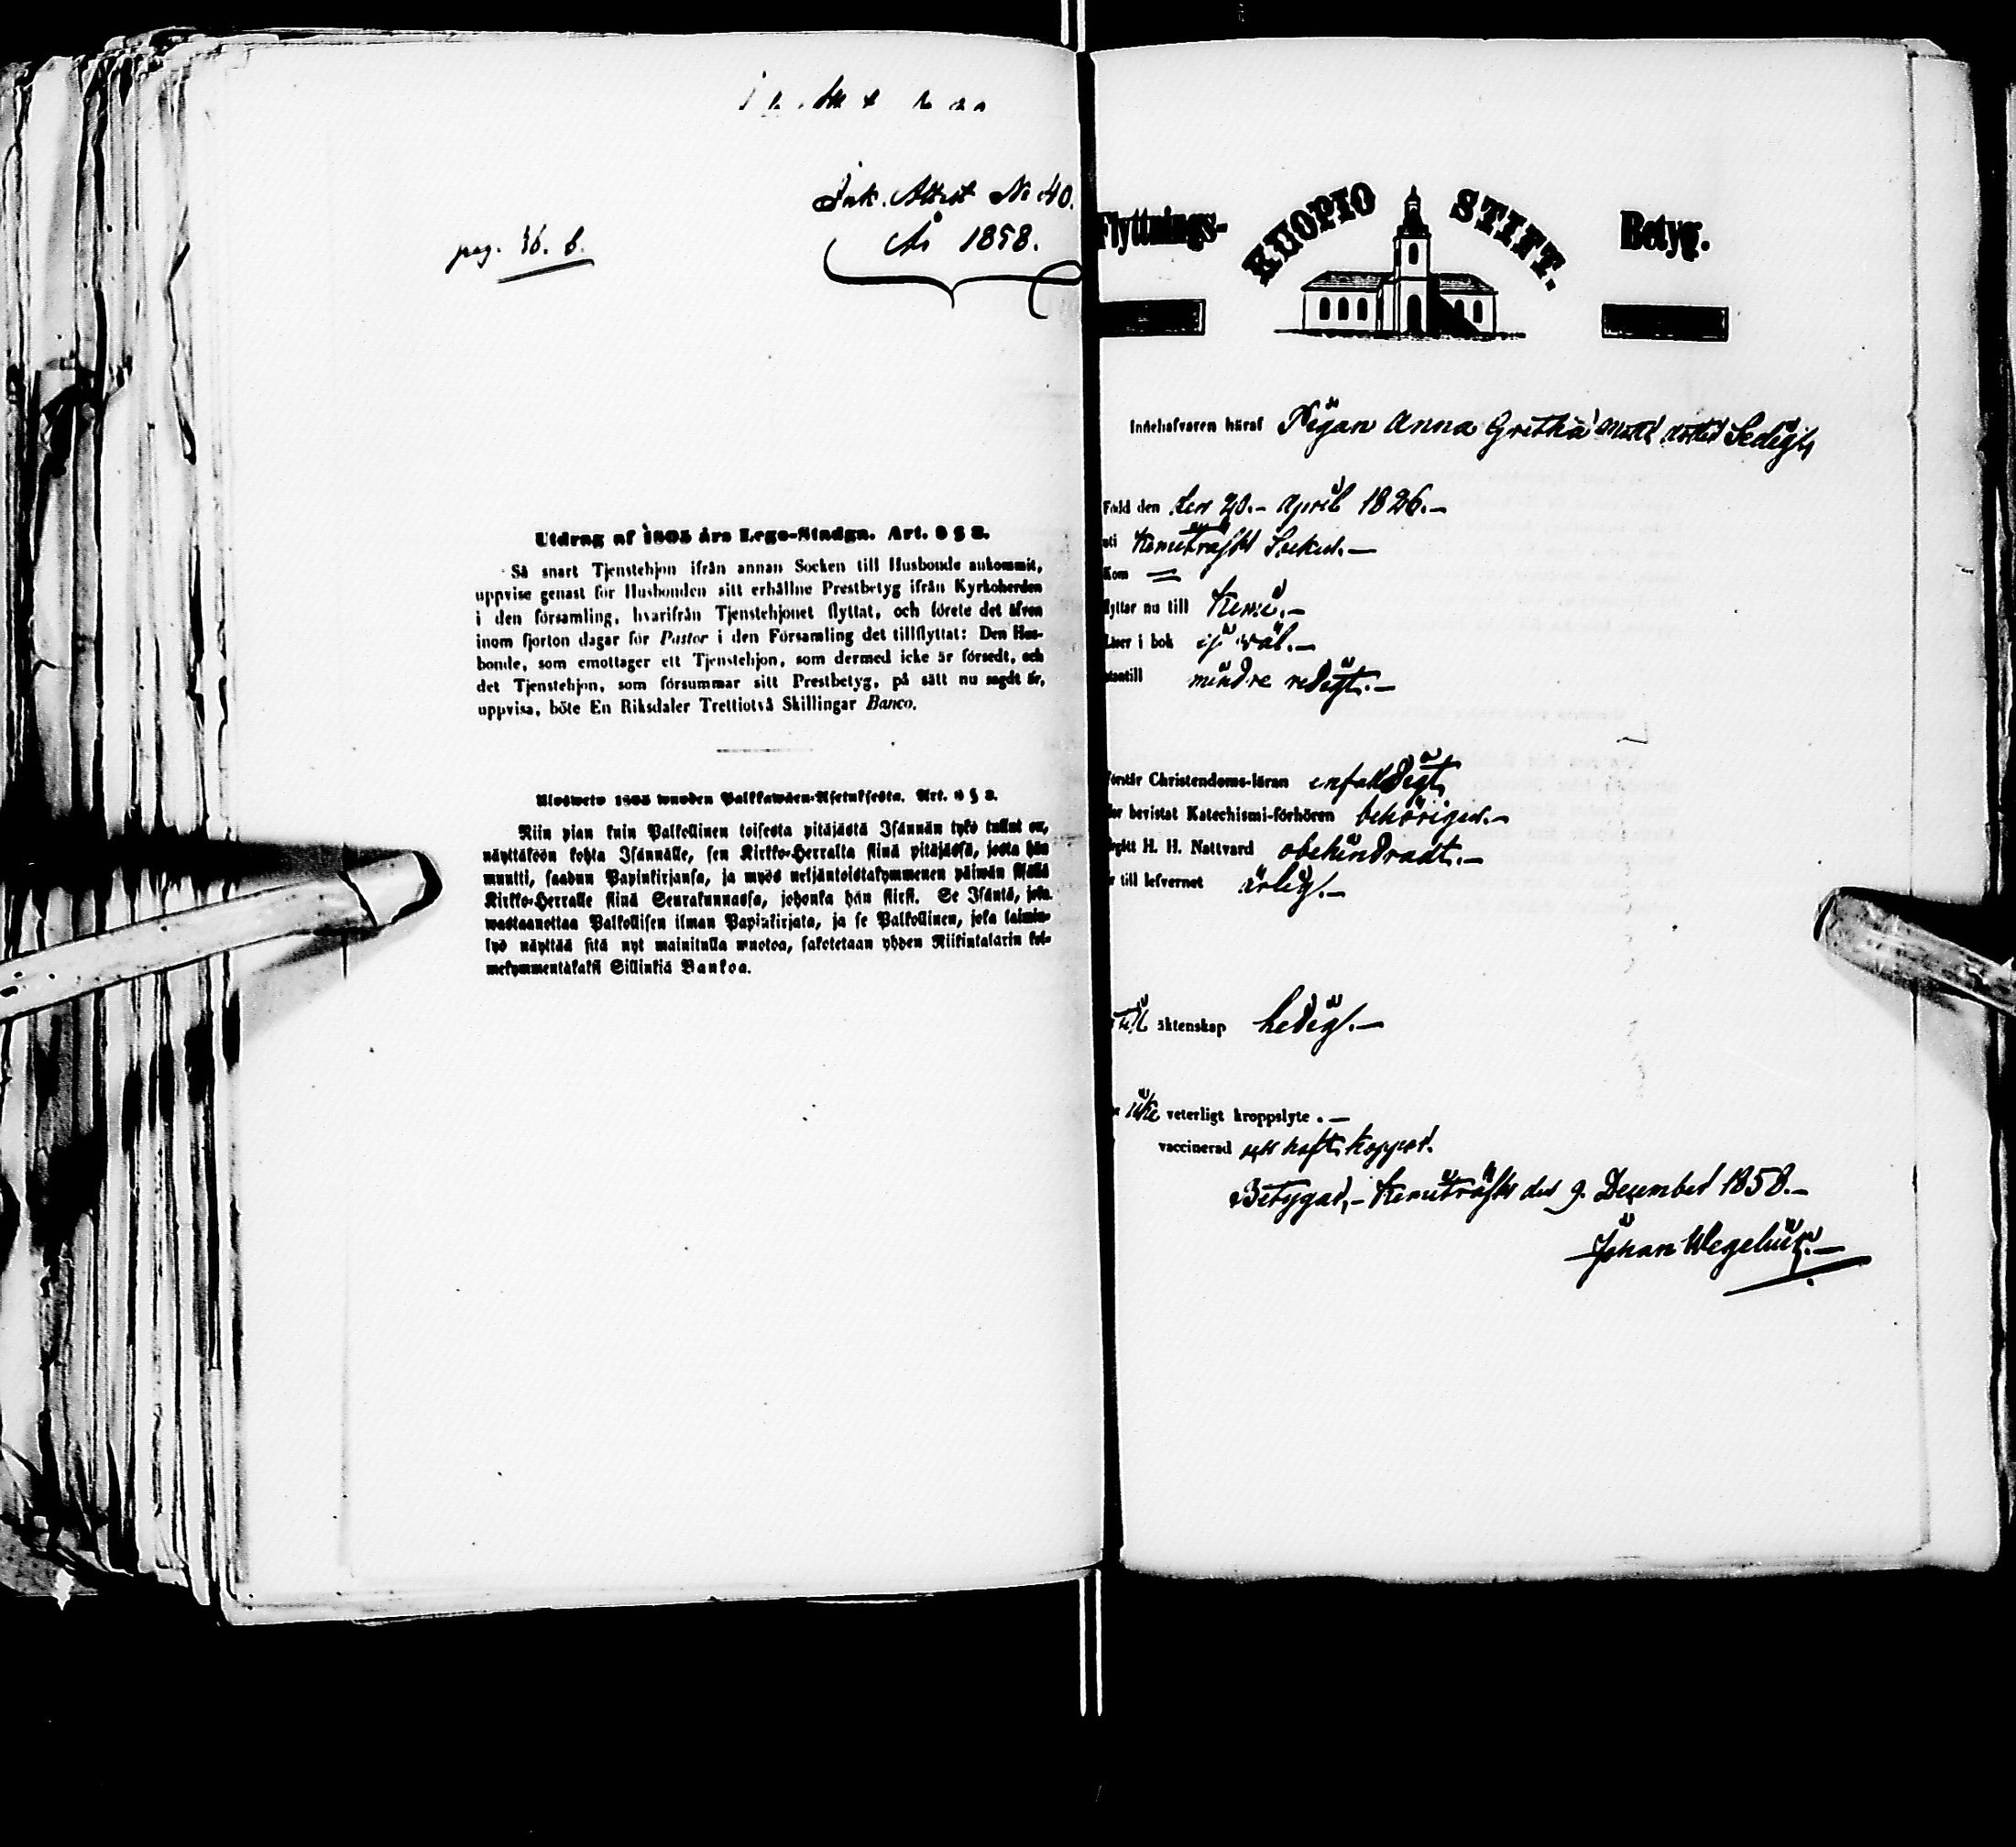 Ink. Attest No 40.
År 1858.
pag. 36. b.
Utdrag af 1805 års Lego-Stadgn. Art. 9 § 8.
Så snart Tjenstehjon ifrån annan Socken till Husbonde ankommit,
uppvise genast för Husbonden sitt erhållne Prestbetyg ifrån Kyrkoherden
i den församling, hvarifrån Tjenstehjonet flyttat, och förete det äfven
inom fjorton dagar för Pastor i den Församling det tillflyttat: Den Hus-
bonde, som emottager ett Tjenstehjon, som dermed icke är försedt, och
det Tjenstehjon, som försummar sitt Prestbetyg, på sätt nu sagdt är,
uppvisa, böte En Riksdaler Trettiotvå Skillingar Banco.
Ulosweto 1805 wuoden Palkkawäen-Asetuksesta. Art. 9 § 8.
Niin pian kuin Palkollinen toisesta pitäjästä Isännän tykö tullut on,
näyttäköön kohta Isännälle, sen Kirkko-Herralta siinä pitäjässä, josta hän
muutti, saadun Papinkirjansa, ja myös neljäntoistakymmenen päiwän sisällä
Kirkko-Herralle siinä Seurakunnassa, johonka hän siirsi. Se Isäntä, joka
wastaanottaa Palkollisen ilman Papinkirjata, ja se Palkollinen, joka laimin-
lyö näyttää sitä nyt mainitulla muotoa, sakotetaan yhden Riikintalarin kol-
mekymmentäkaksi Sillinkiä Bankoa.
Flyttnings- KUOPIO STIFT. Betyg.
Innehafvaren häraf Pigan Anna Gretha
Född den den 20.- April 1826.-
uti Kemiträsks Socken.-
Kom =
flyttar nu till Kemi.-
Läser i bok ej väl.-
utantill mindre redigt.-
förstår Christendoms-läran enfaldigt
har bevistat Katechismi-förhören behörigen.-
begått H. H. Nattvard obehindradt.-
är till lefvernet ärlig.-
till äktenskap ledig.-
icke veterligt kroppslyte.-
vaccinerad haft koppor.
Betygar,- Kemiträsk den 9. December 1858.-
Johan Wegelius.-